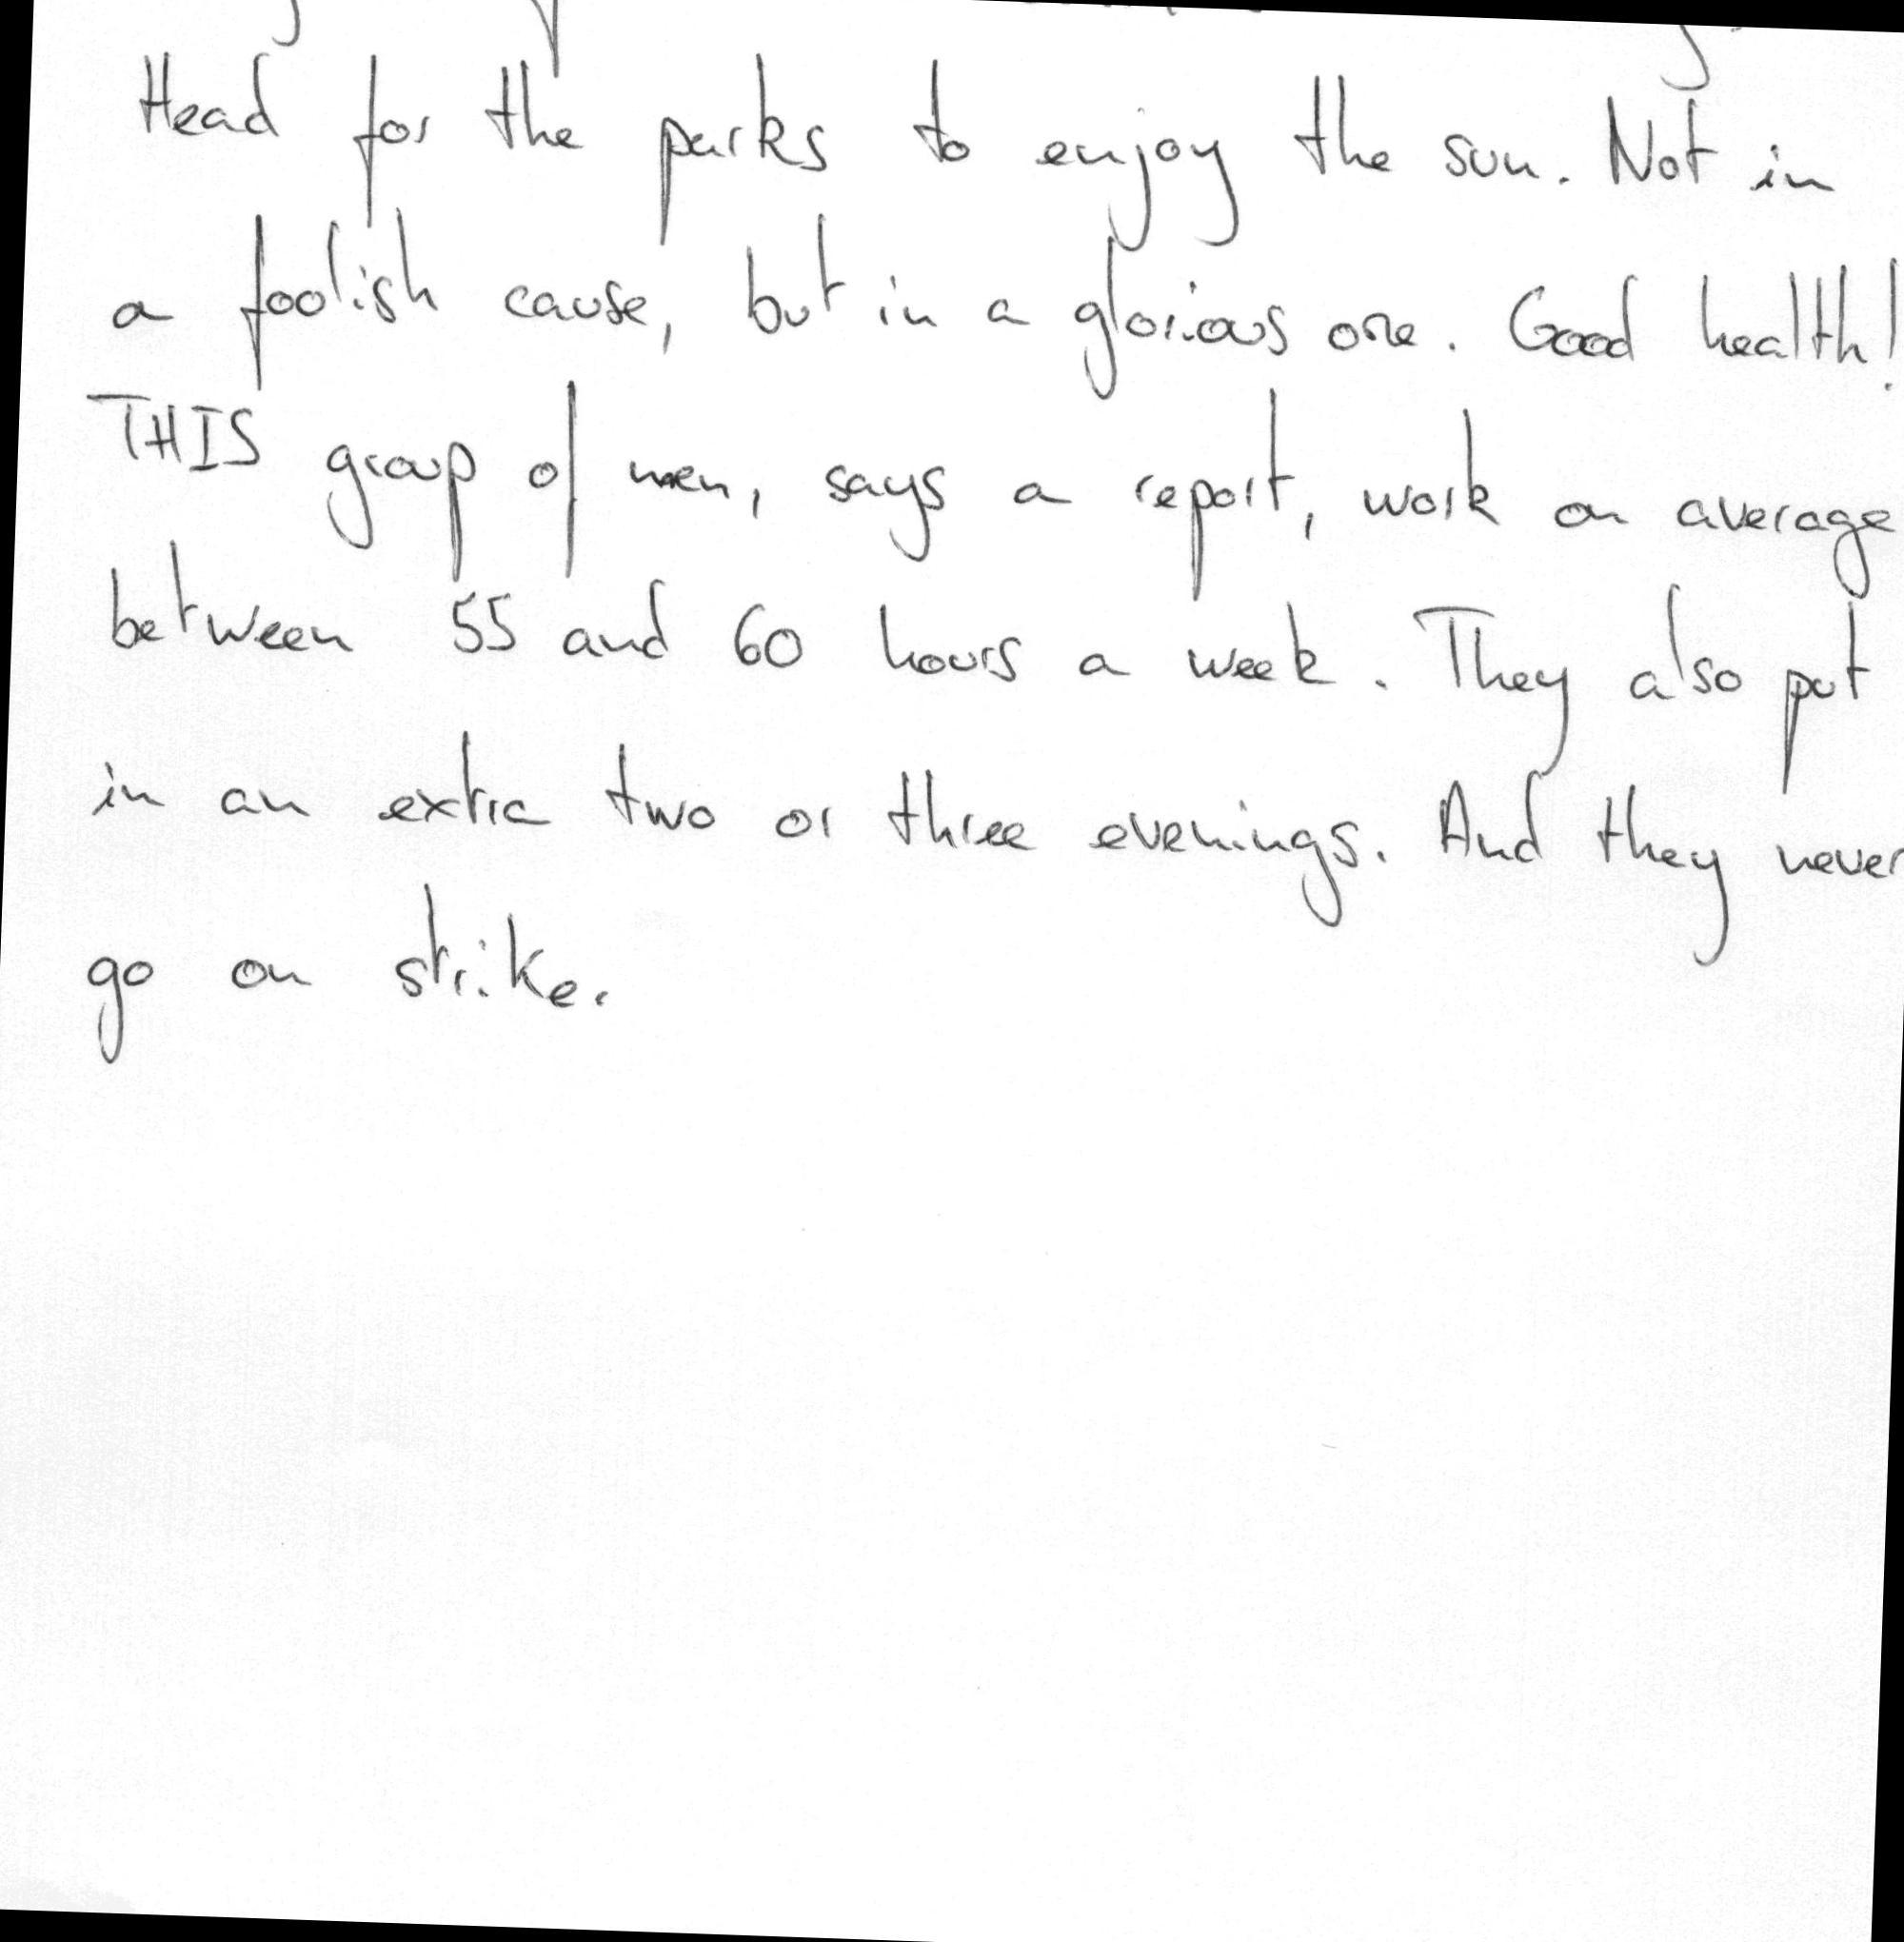 Head for the parks to enjoy the sun. Not in
a foolish cause, but in a glorious one. Good health!
THIS group of men, says a report, work on average
between 55 and 60 hours a week. They also put
in an extra two or three evenings. And they never
go on strike.